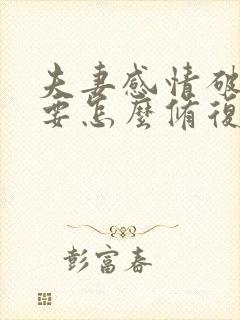 夫妻感情破
要怎麼脩復
彭富春